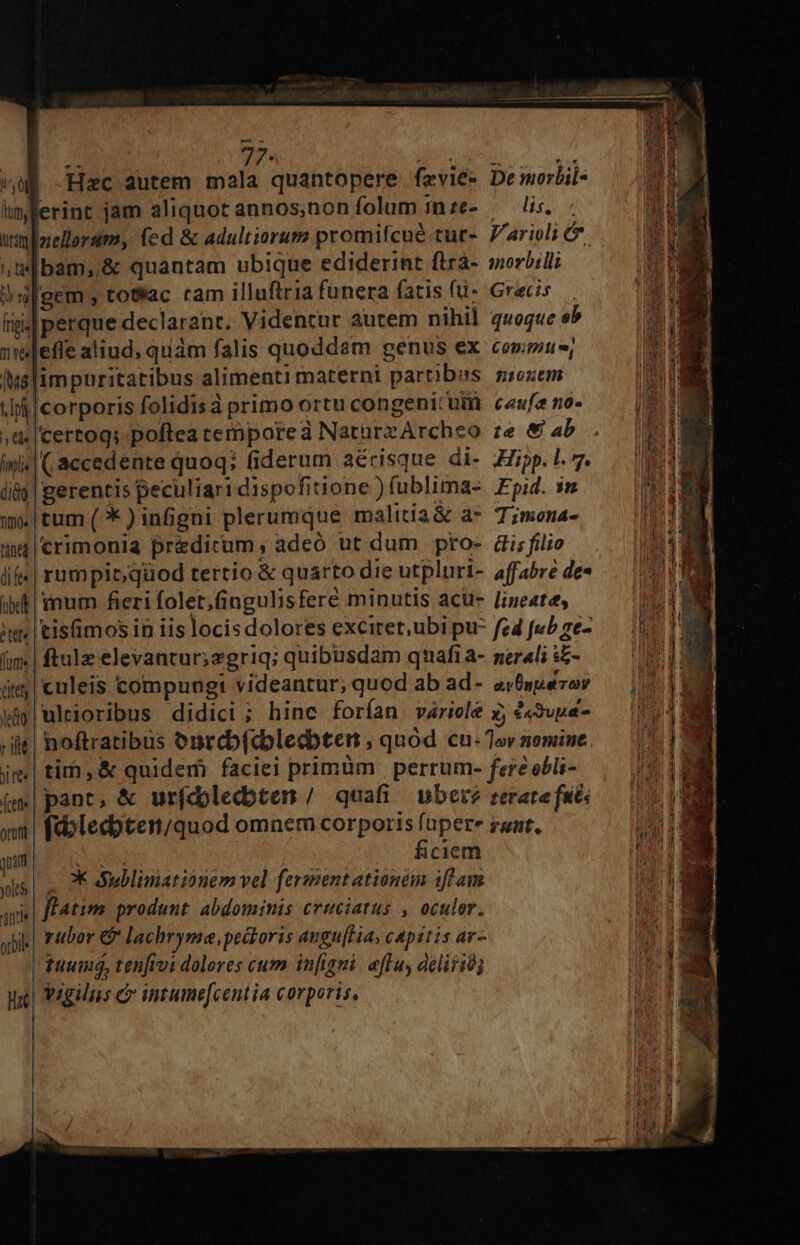 77.
Hæc autem mala quantopere ſævie-
rint jam aliquot annos, non ſolum in re-
nellorum, ſed & adultiorum promiſcuè tur-
bam, & quantam ubique ediderint ſtrà-
gem, tot ac tam illuſtria funera fatis ſu-
perque declarant. Videntur autem nihil
eſſe aliud, quàm ſalis quoddam genus ex
impuritatibus alimenti materni partibus
corporis ſolidis à primo ortu congenitum
certoq; poſtea tempore à Naturæ Archeo
(accedente quoq; ſiderum aërisque di-
gerentis peculiari dispoſitione) ſublima-
tum (*) inſigni plerumque malitia & a-
crimonia præditum, adeò ut dum pro-
rumpit, quod tertio & quarto die ut pluri-
mum fieri ſolet, ſingulis ferè minutis acu-
tisſimos in iis locis dolores excitet, ubi pu-
ſtulæ elevantur; ægriq; quibusdam quaſi a-
culeis compungi videantur, quod ab ad-
ultioribus didici; hinc forſan
noſtratibus durchſchlechten, quòd cu-
tim, & quidem faciei primùm perrum-
pant, & urſchlechten / quaſi ubere
ſchlechten / quod omnem corporis ſupere
ficiem
* Sublimationem vel fermentationem iſtam
ſtatim produnt abdominis cruciatus, oculor.
rubor & lachrymæ, pectoris anguſtia, capitis ar-
tuumq́, tenſivi dolores cum inſigni æſtu, deliriò;
vigiliis & intumeſcentia corporis.
De morbil-
lis.
Varioli &
morbilli
Græcis
quoque ob
commu-
nionem
cauſæ no-
te & ab
Hipp. l. 7.
Epid. in
Timona-
ctis filio
affabrè de-
lineatæ,
ſed ſub ge-
nerali
variolæ
nomine
ferè obli-
teratæ fuê;
runt.